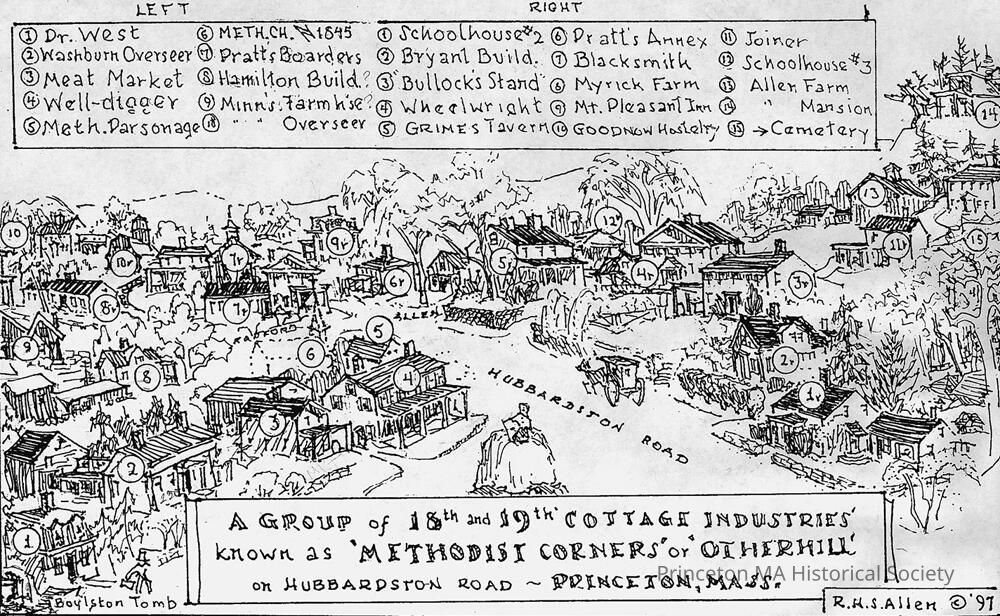 LEFT
RIGHT
① Dr. West
② Washburn Overseer
③ Meat Market
④ Well-digger
⑤ Meth. Parsonage
⑥ METH.CH. → 1845
⑦ Pratt's Boarders
⑧ Hamilton Build.?
⑨ Minns. Farmh'se?
⑩ " " Overseer
① Schoolhouse #2
② Bryant Build.
③ "Bullock's Stand"
④ Wheelwright
⑤ GRIMES TAVERN
⑥ Pratt's Annex
⑦ Blacksmith
⑧ Myrick Farm
⑨ Mt. Pleasant Inn
⑩ GOODNOW Hostelry
⑪ Joiner
⑫ Schoolhouse #3
⑬ Allen Farm
⑭ " Mansion
⑮ → Cemetery
14
13
12r
10
10r
7r
9r
6r
5r
4r
11r
15
3r
8r
7r
ALLEN
RADFORD
9
8
6
5
4
2r
1r
HUBBARDSTON ROAD
3
2
1
A GROUP of 18th and 19th COTTAGE INDUSTRIES
known as 'METHODIST CORNERS' or 'OTHERHILL'
on HUBBARDSTON ROAD ~ PRINCETON, MASS.
Princeton MA Historical Society
Boylston Tomb
R.H.S. Allen © '97